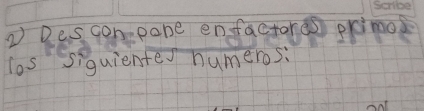 Scribe
2) Descon pone enfactores primos
los siguientes numeros: